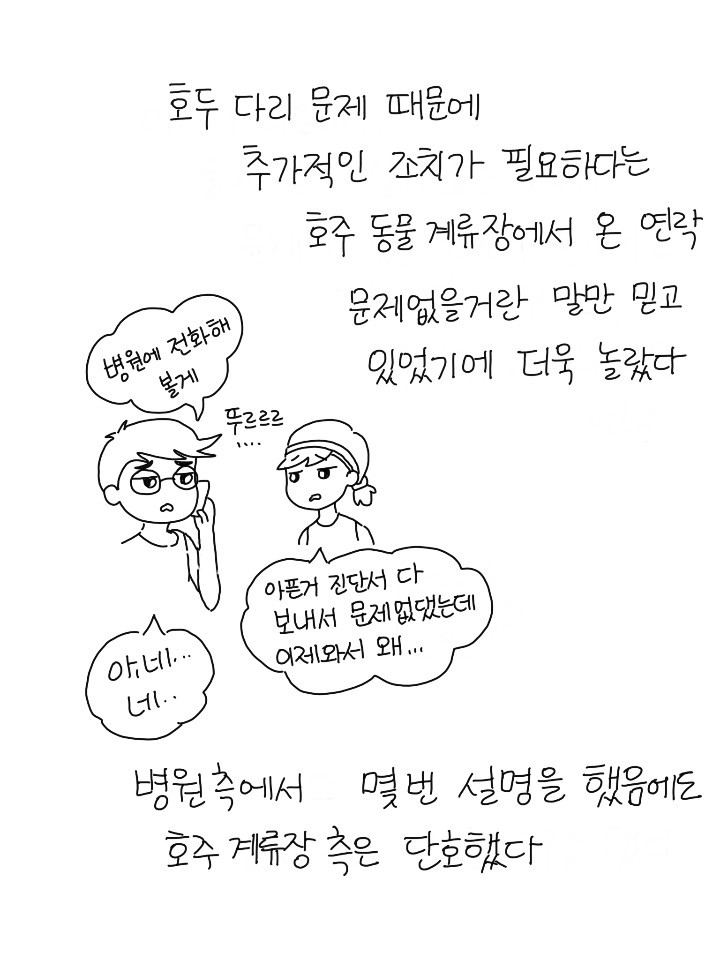 호두 다리 문제 때문에
추가적인 조치가 필요하다는
호주 동물 계류장에서 온 연락
문제없을거란 말만 믿고
있었기에 더욱 놀랐다
병원에 전화해
볼게
뚜르르르
....
아픈거 진단서 다
보내서 문제없댔는데
이제와서 왜...
아,네...
네..
병원측에서 몇번 설명을 했음에도
호주 계류장 측은 단호했다